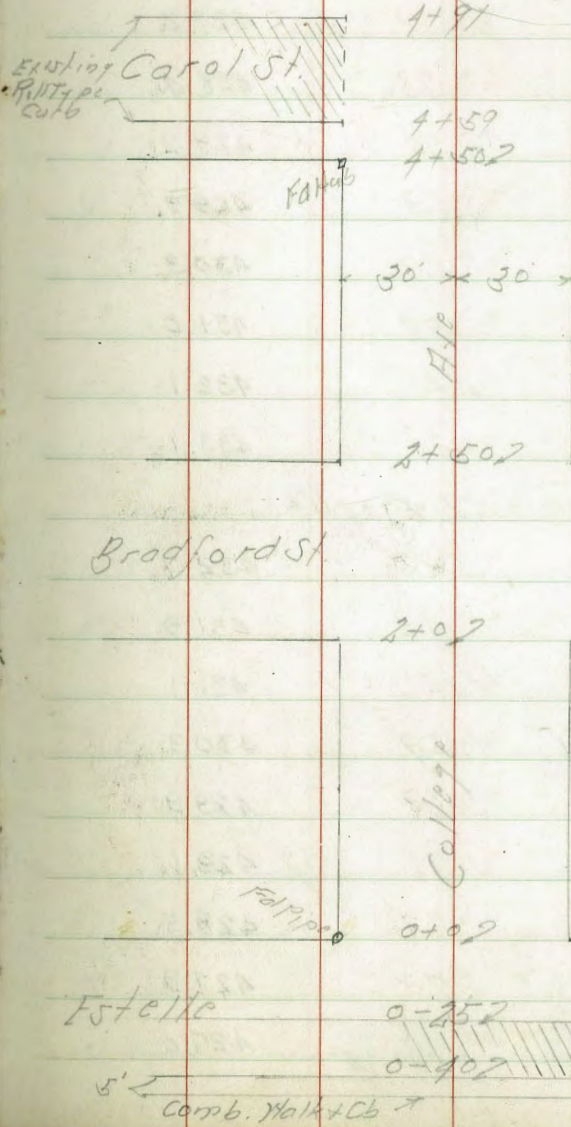 4+91
Existing Carol St.
Roll Type
Curb
4+59
4+502
Fd Hub
30' 30'
Ave
2+502
Bradford St.
2+02
College
Fd Pipe
0+02
Estelle
0-252
0-402
5'
Comb. Walk & Cb